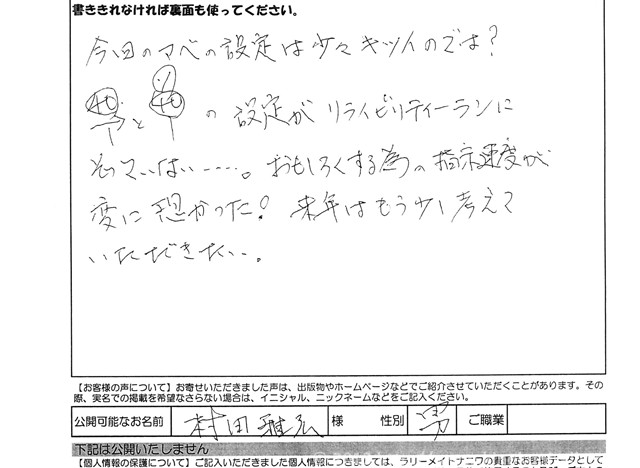 書ききれなければ裏面も使ってください。
今回のアベの設定は少々キツイのでは?
40 と 40 の 設定が リライビリティーランに
そっていない……。おもしろくする為の指示速度が
変に 思かった! 来年はもう少し考えて
いただきたい…。
【お客様の声について】お寄せいただきました声は、出版物やホームページなどでご紹介させていただくことがあります。その
際、実名での掲載を希望なさらない場合は、イニシャル、ニックネームなどをご記入ください。
公開可能なお名前 村田 雅弘 様 性別 男 ご職業
下記は公開いたしません
【個人情報の保護について】ご記入いただきました個人情報につきましては、ラリーメイトナニワの貴重なお客様データとして